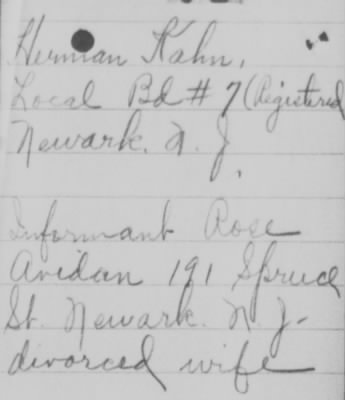 Herman Kahn.
Local Bd # 7 (Registered
Newark. N. J.
Informant Rose
Avidan 191 Spruce
St. Newark. N. J-
divorced wife